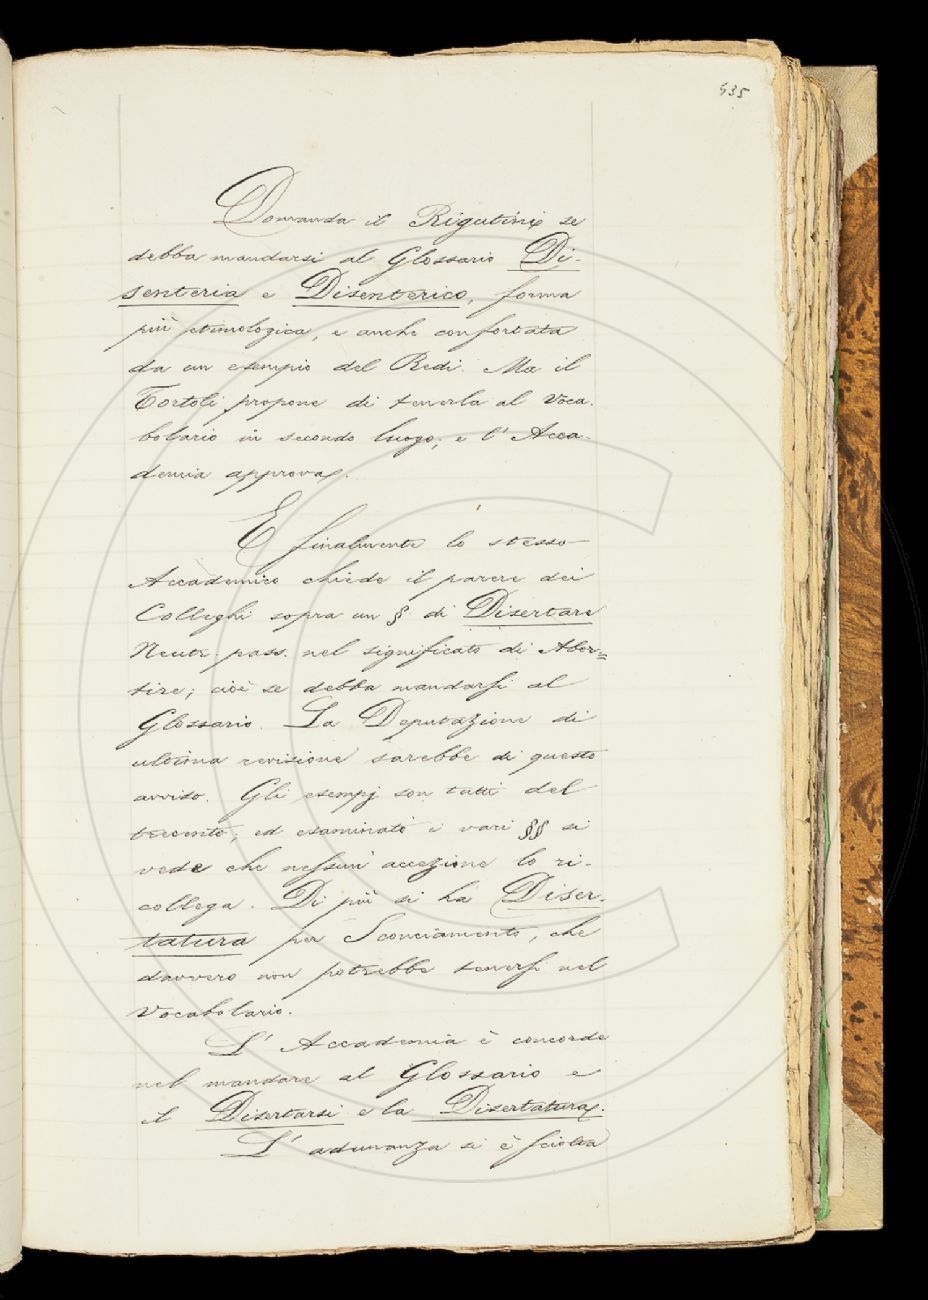 535
Domanda il Rigutini se
debba mandarsi al Glossario Di-
senteria e Disenterico, forma
più etimologica, e anche confortata
da un esempio del Redi. Ma il
Tortoli propone di tenerla al Voca-
bolario in secondo luogo; e l' Acca-
demia approva.
E finalmente lo stesso
Accademico chiede il parere dei
Colleghi sopra un § di Disertare
Neutr. pass. nel significato di Abor=
tire; cioè se debba mandarsi al
Glossario. La Deputazione di
ultima revisione sarebbe di questo
avviso. Gli esempj son tutti del
trecento; ed esaminati i vari §§ si
vede che nessun' accezione lo ri-
collega. Di più si ha Diser-
tatura per Sconciamento, che
davvero non potrebbe tenersi nel
Vocabolario.
L' Accademia è concorde
nel mandare al Glossario e
il Disertarsi e la Disertatura.
L' adunanza si è sciolta